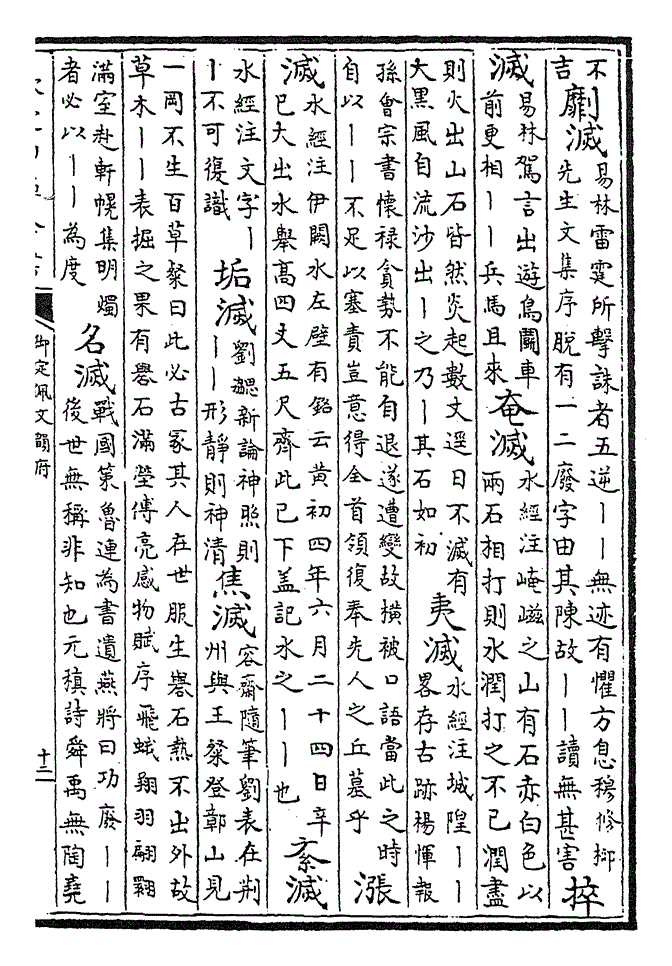 不吉 劘滅 易林雷霆所擊誅者五逆丨丨無迹有懼方息穆修柳先生文集序脫有一二廢字由其陳故丨丨讀無甚害 捽
滅 易林駕言出遊鳥鬬車前更相丨丨兵馬且來 奄滅 水經注崦嵫之山有石赤白色以兩石相打則水潤打之不已潤盡
則火出山石皆然炎起數丈逕日不滅有大黑風自流沙出丨之乃丨其石如初 夷滅 水經注城隍丨丨畧存古跡楊惲報
孫會宗書懷祿貪勢不能自退遂遭變故横被口語當此之時自以丨丨不足以塞責豈意得全首領復奉先人之丘墓乎 漲
滅 水經注伊闕水左壁有銘云黄初四年六月二十四日辛巳大出水舉高四丈五尺齊此已下盖記水之丨丨也 紊滅
水經注文字丨丨不可復識 垢滅 劉勰新論神照則丨丨形靜則神清 焦滅 容齋隨筆劉表在荆州與王粲登鄣山見
一岡不生百草粲曰此必古冢其人在世服生礜石熱不出外故草木丨丨表掘之果有礜石滿塋傅亮感物賦序飛蛾翔羽翩翾
滿室赴軒幌集明燭者必以丨丨為度 名滅 戰國策魯連為書遺燕將曰功廢丨丨後世無稱非知也元稹詩舜禹無陶堯
御定佩文韻府
十二